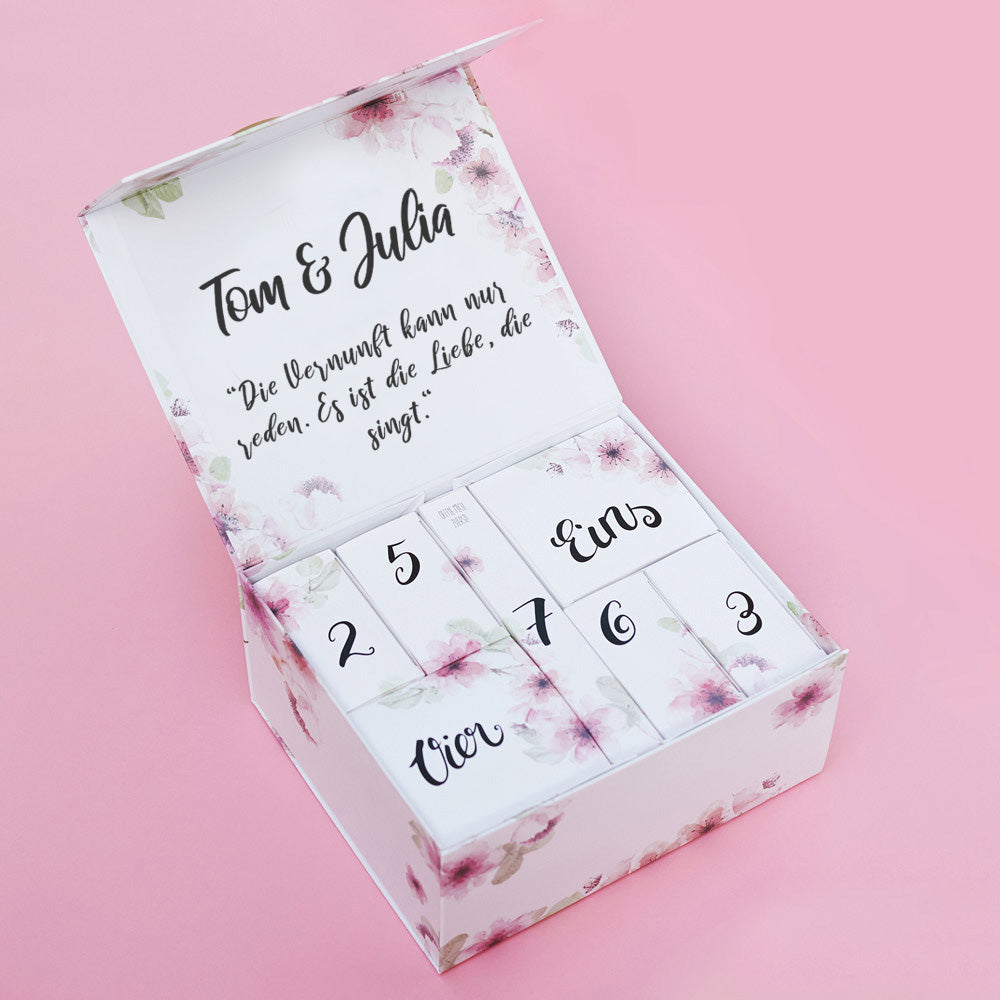 Tom & Julia
“Die Vernunft kann nur
reden. Es ist die Liebe, die
singt.“
ÖFFNE MICH
ZUERST!
Eins
5
2
7
6
3
Vier